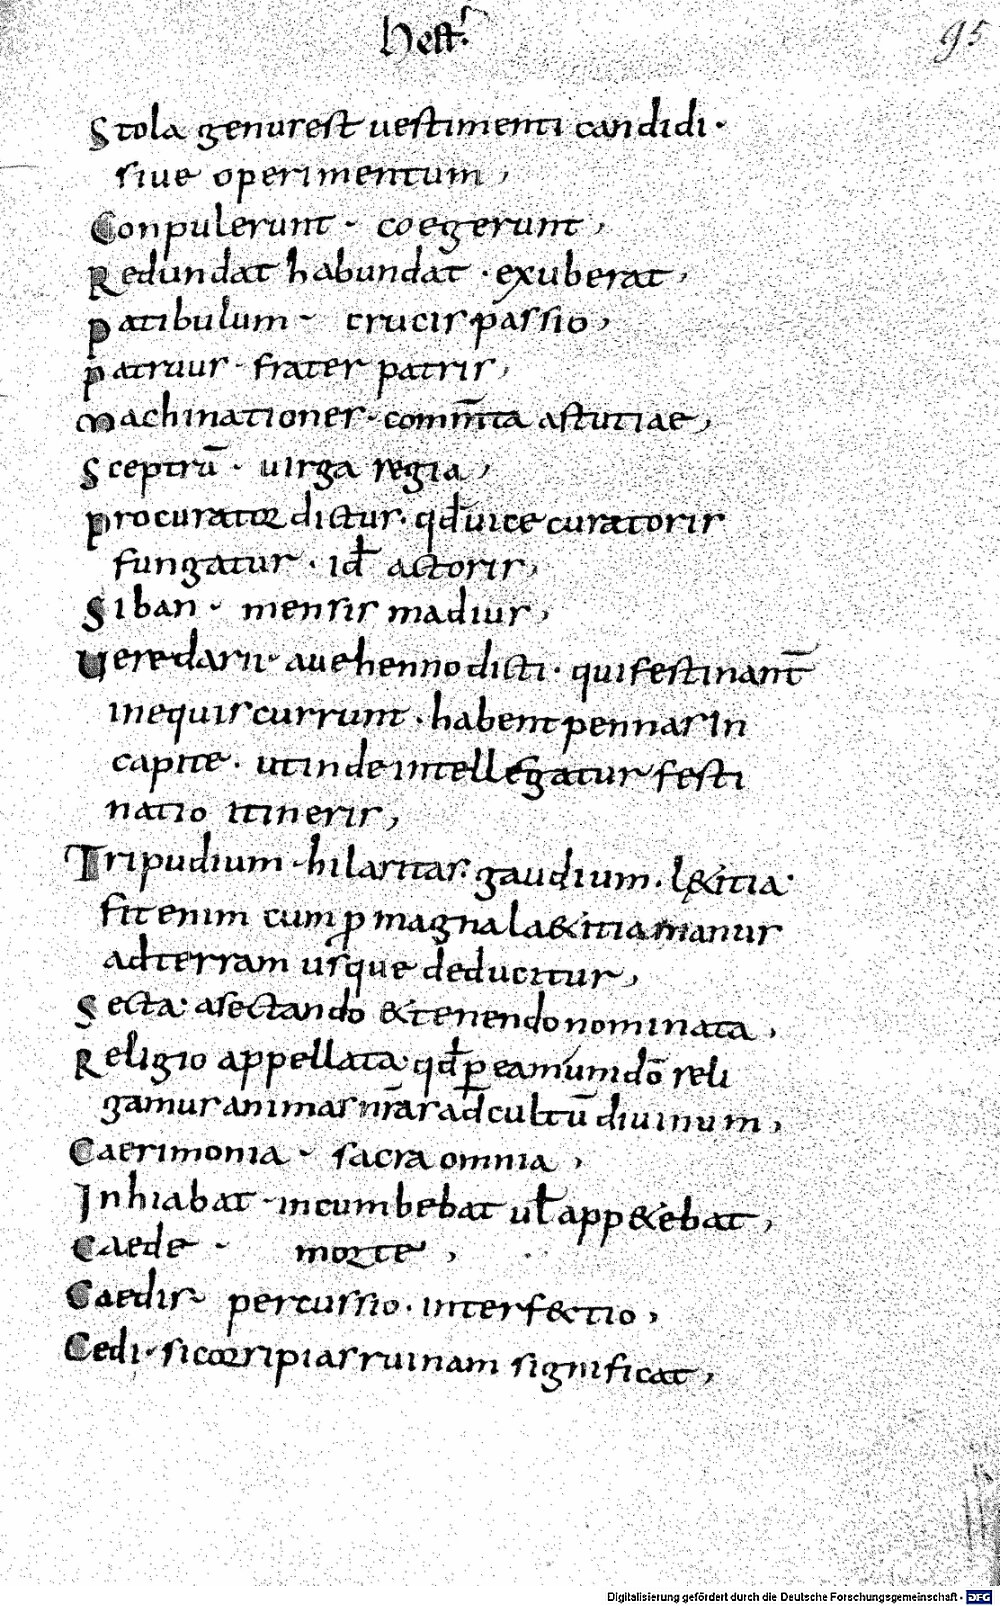 Hest.
95
Stola genus est uestimenti candidi·
siue operimentum,
Conpulerunt· coegerunt,
Redundat habundat · exuberat,
Patibulum - crucis passio,
patruus · frater patris,
Machinationes - comm̅ta astutiae,
Sceptrū · uirga regia,
Procurator dictus · qđ uice curatoris
fungatur · iđ actoris,
Siban - mensis madius,
Ueredarii · auehenno dicti · qui festinanт̅
in equis currunt · habent pennas In
capite · ut inde intellegatur festi
natio itineris,
Tripudium · hilaritas · gaudium · lę&itia·
fit enim cum p magna la&itia manus
ad terram usque deducitur,
Secta· a sectando &tenendo nominata,
Religio appellata· qđ p eam unum dō reli
gamur animas nr̅as ad cultū diuinum,
Caerimonia - sacra omnia,
Inhiabat - incumbebat uł app&ebat,
Caede - morte,
Caedis percussio · interf&tio,
Cedi · si corripias ruinam significat,
Digitalisierung gefördert durch die Deutsche Forschungsgemeinschaft · DFG